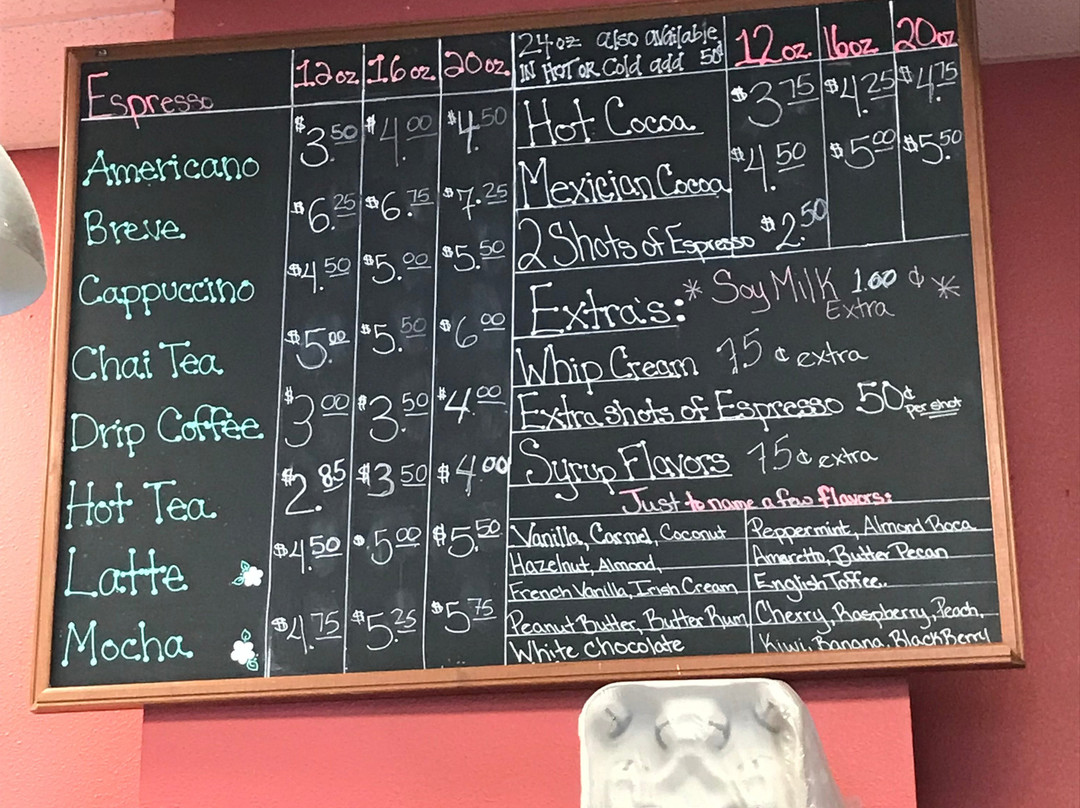 Espresso 12oz 16oz 20oz
Americano $3.50 $4.00 $4.50
Breve $6.25 $6.75 $7.25
Cappuccino $4.50 $5.00 $5.50
Chai Tea $5.00 $5.50 $6.00
Drip Coffee $3.00 $3.50 $4.00
Hot Tea $2.85 $3.50 $4.00
Latte $4.50 $5.00 $5.50
Mocha $4.75 $5.25 $5.75
24oz also available
IN HOT OR Cold add 50¢
12oz 16oz 20oz
Hot Cocoa $3.75 $4.25 $4.75
Mexician Cocoa $4.50 $5.00 $5.50
2 Shots of Espresso $2.50
Extra's: * Soy Milk 1.00 ¢ *
Extra
Whip Cream 75¢ extra
Extra shots of Espresso 50¢ per shot
Syrup Flavors 75¢ extra
Just to name a few flavors:
Vanilla, Carmel, Coconut
Hazelnut, Almond,
French Vanilla, Irish Cream
Peanut Butter, Butter Rum
White chocolate
Peppermint, Almond Roca
Amaretto, Butter Pecan
English Toffee.
Cherry, Raspberry, Peach,
Kiwi, Banana, BlackBerry